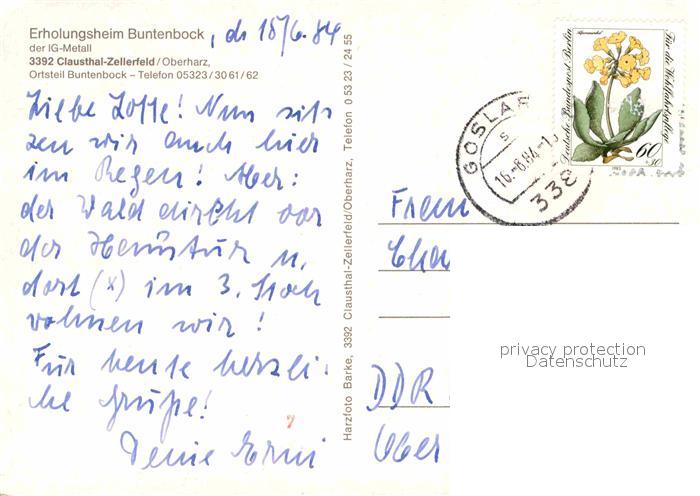 Erholungsheim Buntenbock
der IG-Metall
3392 Clausthal-Zellerfeld/Oberharz,
Ortsteil Buntenbock – Telefon 05323/3061/62
, d. 15/6.84
Liebe Lotte! Nun sit-
zen wir auch hier
im Regen! Aber:
der Wald direkt vor
der Haustür u.
dort (x) im 3. Stock
wohnen wir!
Für heute herzli-
che Grüße!
Deine Erni
Harzfoto Barke, 3392 Clausthal-Zellerfeld/Oberharz, Telefon 05323/2455
Deutsche Bundespost Berlin
Für die Wohlfahrtspflege
60
GOSLAR
16.-6.84-1
338
DDR
Ober
privacy protection
Datenschutz